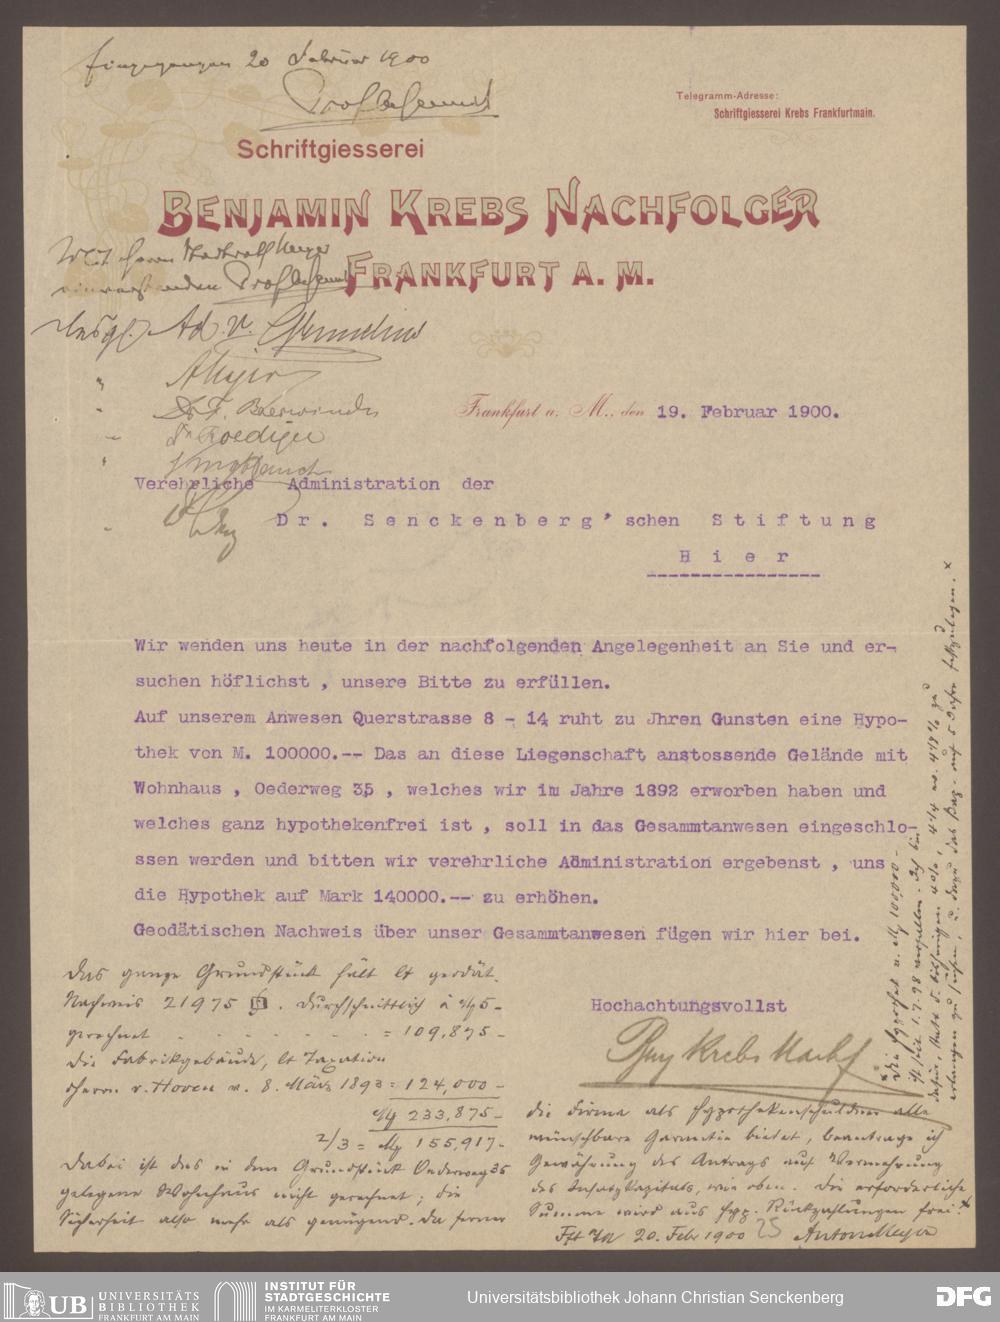 Eingegangen 20 Februar 1900
Telegramm-Adresse:
Schriftgiesserei Krebs Frankfurtmain.
Schriftgiesserei
BENJAMIN KREBS NACHFOLGER
FRANKFURT A. M.
Mit Herrn Stadtrath Meyer
einverstanden
Desgl. Ad. v.
" AMeyer
" Dr. F.
" Dr Roediger
Frankfurt a. M., den 19. Februar 1900.
Verehrliche Administration der
Dr. Senckenberg'schen Stiftung
Hier
Wir wenden uns heute in der nachfolgenden Angelegenheit an Sie und er-
suchen höflichst , unsere Bitte zu erfüllen.
Auf unserem Anwesen Querstrasse 8 - 14 ruht zu Jhren Gunsten eine Hypo-
thek von M. 100000.-- Das an diese Liegenschaft anstossende Gelände mit
Wohnhaus , Oederweg 35 , welches wir im Jahre 1892 erworben haben und
welches ganz hypothekenfrei ist , soll in das Gesammtanwesen eingeschlo-
ssen werden und bitten wir verehrliche Administration ergebenst , uns
die Hypothek auf Mark 140000.-- zu erhöhen.
Geodätischen Nachweis über unser Gesammtanwesen fügen wir hier bei.
Hochachtungsvollst
Benj Krebs Nachf
Das ganze Grundstück hält lt geodät.
Nachweis 21975 . Durchschnittlich à M 5-
gerechnet = 109,875-
die Fabrikgebäude, lt Taxation
Herrn v. Hoven v. 8. März 1893 = 124,000-
M 233,875-
2/3 = M 155,917-
Dabei ist das in dem Grundstück Oederweg 35
gelegene Wohnhaus nicht gerechnet; die
Sicherheit also mehr als genügend. Da ferner
die Firma als Hypothekenschuldner alle
wünschbare Garantie bietet, beantrage ich
Gewährung des Antrags auf Vermehrung
des Insatzkapitals, wie oben. Die erforderliche
Summe wird aus hyp. Rückzahlungen frei. x
Fft a/M 20. Febr 1900 Anton Meyer
25
x Die Hypothek v. M 100,000 -
ist seit 1.7.98 verfallen. Ich bin
dafür, statt d. bisherigen 4%, 4 1/4 ev. 4 1/8 % zu
erlangen zu suchen, u. dazu das Kap. auf 5 Jahre festzulegen. x